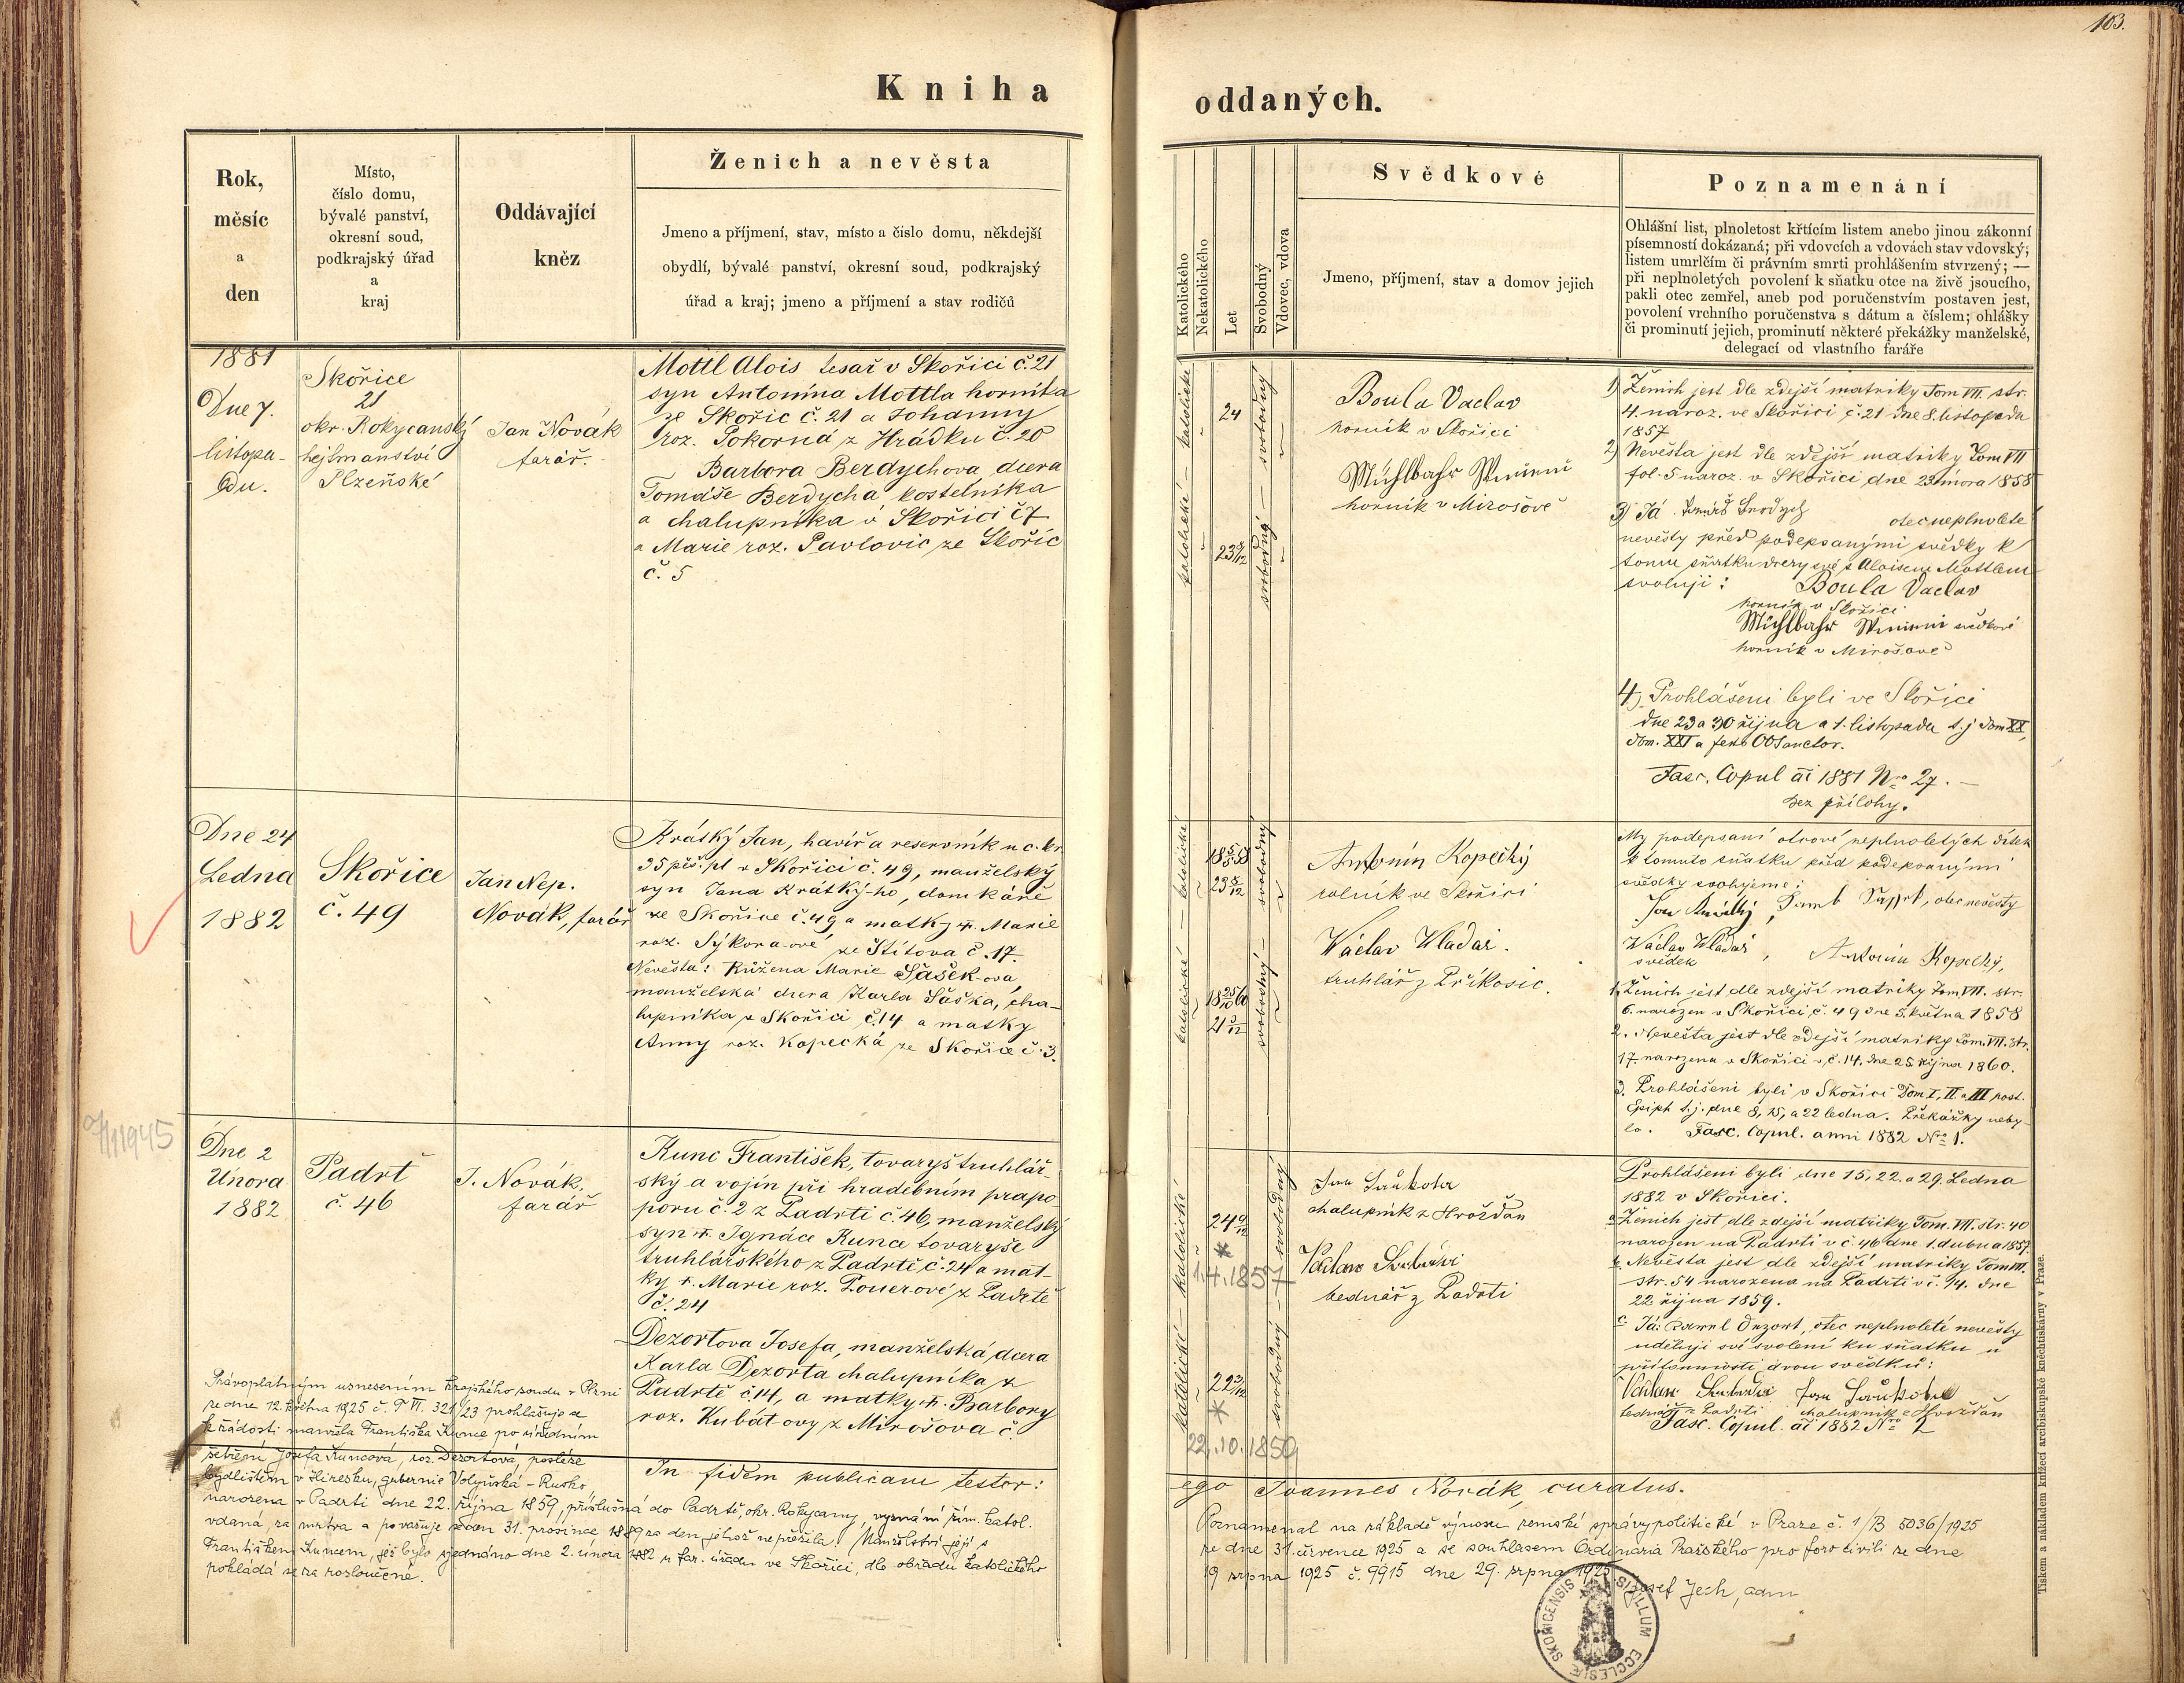 103.
Kniha oddaných.
Rok,
měsíc
a
den
Místo,
číslo domu,
bývalé panství,
okresní soud,
podkrajský úřad
a
kraj
Oddávající
kněz
Ženich a nevěsta
Jmeno a příjmení, stav, místo a číslo domu, někdejší
obydlí, bývalé panství, okresní soud, podkrajský
úřad a kraj; jmeno a příjmení a stav rodičů
Katolického
Nekatolického
Let
Svobodný
Vdovec, vdova
Svědkové
Jmeno, příjmení, stav a domov jejich
Poznamenání
Ohlášní list, plnoletost křtícím listem anebo jinou zákonní
písemností dokázaná; při vdovcích a vdovách stav vdovský;
listem umrlčím či právním smrti prohlášením stvrzený; —
při neplnoletých povolení k sňatku otce na živě jsoucího,
pakli otec zemřel, aneb pod poručenstvím postaven jest,
povolení vrchního poručenstva s dátum a číslem; ohlášky
či prominutí jejich, prominutí některé překážky manželské,
delegací od vlastního faráře
1881
Dne 7.
listopa-
du.
Skořice
21
okr. Rokycanský
hejtmanství
Plzeňské
Jan Novák
farář.
Mottl Alois tesař v Skořici č. 21
syn Antonína Mottla horníka
ze Skořic č. 21 a Johanny
roz. Pokorná z Hrádku č. 20
Barbora Berdychova dcera
Tomáše Berdycha kostelníka
a chalupníka v Skořici č 7
a Marie roz. Pavlovic ze Skořic
č. 5
katolické — katolické
24
23 8/12
svobodný — svobodný
Boula Vaclav
horník v Skořici
Mühlbahr
horník v Mirošově
1) Ženich jest dle zdejší matriky Tom VII. str.
4. naroz. ve Skořici č. 21 dne 8. listopadu
1857
2) Nevěsta jest dle zdejší matriky Tom VII
fol. 5 naroz. v Skořici dne 23 února 1858
3) Já Tomáš otec neplnoleté
nevěsty před podepsanými svědky k
tomu sňatku dcery své s Aloisem Mottlem
svoluji: Boula Vaclav
horník v Skořici
Mühlbahr svědkové
horník v Mirošově
4) Prohlášeni byli ve Skořici
dne 23 a 30 října a 1. listopadu t. j. Dom XX,
Dom. XXI a festo OO Sanctor.
Fasc. Copul ai 1881 Nro 27. —
bez přílohy.
Dne 24
Ledna
1882
Skořice
č. 49
Jan Nep.
Novák, farář
Krátký Jan, havíř a reservník u c. kr.
35 pěš. pl v Skořici č. 49, manželský
syn Jana Krátký-ho, domkáře
ze Skořice č. 49 a matky †. Marie
roz. Sýkora-ové ze Štítova č. 17.
Nevěsta: Růžena Marie Šašek-ova,
manželská dcera Karla Šáška, cha-
lupníka z Skořici č. 14 a matky
Anny roz. Kopecká ze Skořice č. 3.
katolické — katolické
18 5/5 58
23 8/12
18 25/10 60
21 3/12
svobodný — svobodný
Antonín Kopecký
rolník ve Skořici
Václav Wladař.
truhlář z Příkosic.
My podepsaní otcové neplnoletých dítek
k tomuto sňatku před podepsanými
svědky svolujeme:
Jan Krátký, otec nevěsty
Václav Wladař, Antonín Kopecký,
svědek
1. Ženich jest dle zdejší matriky Tom VII. str.
6. narozen v Skořici č. 49 dne 5. května 1858
2. Nevěsta jest dle zdejší matriky Tom. VII. str.
17. narozena v Skořici v č. 14. dne 25 října 1860.
3. Prohlášeni byli v Skořici Dom I, II. a III post.
Epiph t. j. dne 8, 15, a 22 ledna. Překážky neby-
lo. Fasc. Copul. anni 1882 Nro 1.
1945
Dne 2
Února
1882
Padrť
č. 46
J. Novák,
farář
Kunc František, tovaryš truhlář-
ský a vojín při hradebním prapo-
poru č. 2 z Padrti č. 46, manželský
syn †. Ignáce Kunce tovaryše
truhlářského z Padrtě č. 24 a mat-
ky †. Marie roz. Pouerové z Padrtě
č. 24
Dezortova Josefa, manželská dcera
Karla Dezorta chalupníka z
Padrtě č. 14, a matky †. Barbory
roz. Kubát-ovy z Mirošova č.
katolické — katolické
24 9/12
*
1.4.1857
22 3/12
*
22.10.1859
svobodný — svobodný
Jan
chalupník z Hvožďan
Václav
bednář z Padrti
Prohlášeni byli dne 15, 22. a 29. Ledna
1882 v Skořici.
a Ženich jest dle zdejší matriky Tom. VII. str. 40
narozen na Padrti v č. 46 dne 1. dubna 1857.
b Nevěsta jest dle zdejší matriky Tom VII.
str. 54 narozena na Padrti v č. 14. dne
22 října 1859.
c Já: Karel Dezort, otec neplnoleté nevěsty
uděluji své svolení ku sňatku u
přítomnosti dvou svědků:
Václav Jan
bednář z Padrti chalupník z Hvožďan
Fasc. Copul. ai 1882 Nro 2
In fidem publicam testor:
ego Joannes Novák, curatus.
Právoplatným usnesením krajského soudu v Plzni
ze dne 12. května 1925 č. T VI. 321/23 prohlašuje se
k žádosti manžela Františka Kunce po úředním
šetření Josefa Kuncová, roz. Dezortová, posléze
bydlištěm v Hiresku, gubernie Volyňská - Rusko,
narozena v Padrti dne 22. října 1859, příslušná do Padrtě, okr. Rokycany, vyznání řím. katol.
vdaná, za mrtva a považuje se den 31. prosince 1889 za den jehož nepřežila. Manželství její s
Františkem Kuncem, jež bylo sjednáno dne 2. února 1882 u far. úřadu ve Skořici, dle obřadu katolického
pokládá se za rozloučené.
Poznamenal na základě výnosu zemské správy politické v Praze č. 1/B 5036/1925
ze dne 31. července 1925 a se souhlasem Ordinaria Pražského pro foro civili ze dne
19 srpna 1925 č. 9915 dne 29. srpna 1925. Josef Jech, adm
SIGILLUM ECCLESIÆ SKOŘICENSIS
Tiskem a nákladem knížecí arcibiskupské knihtiskárny v Praze.